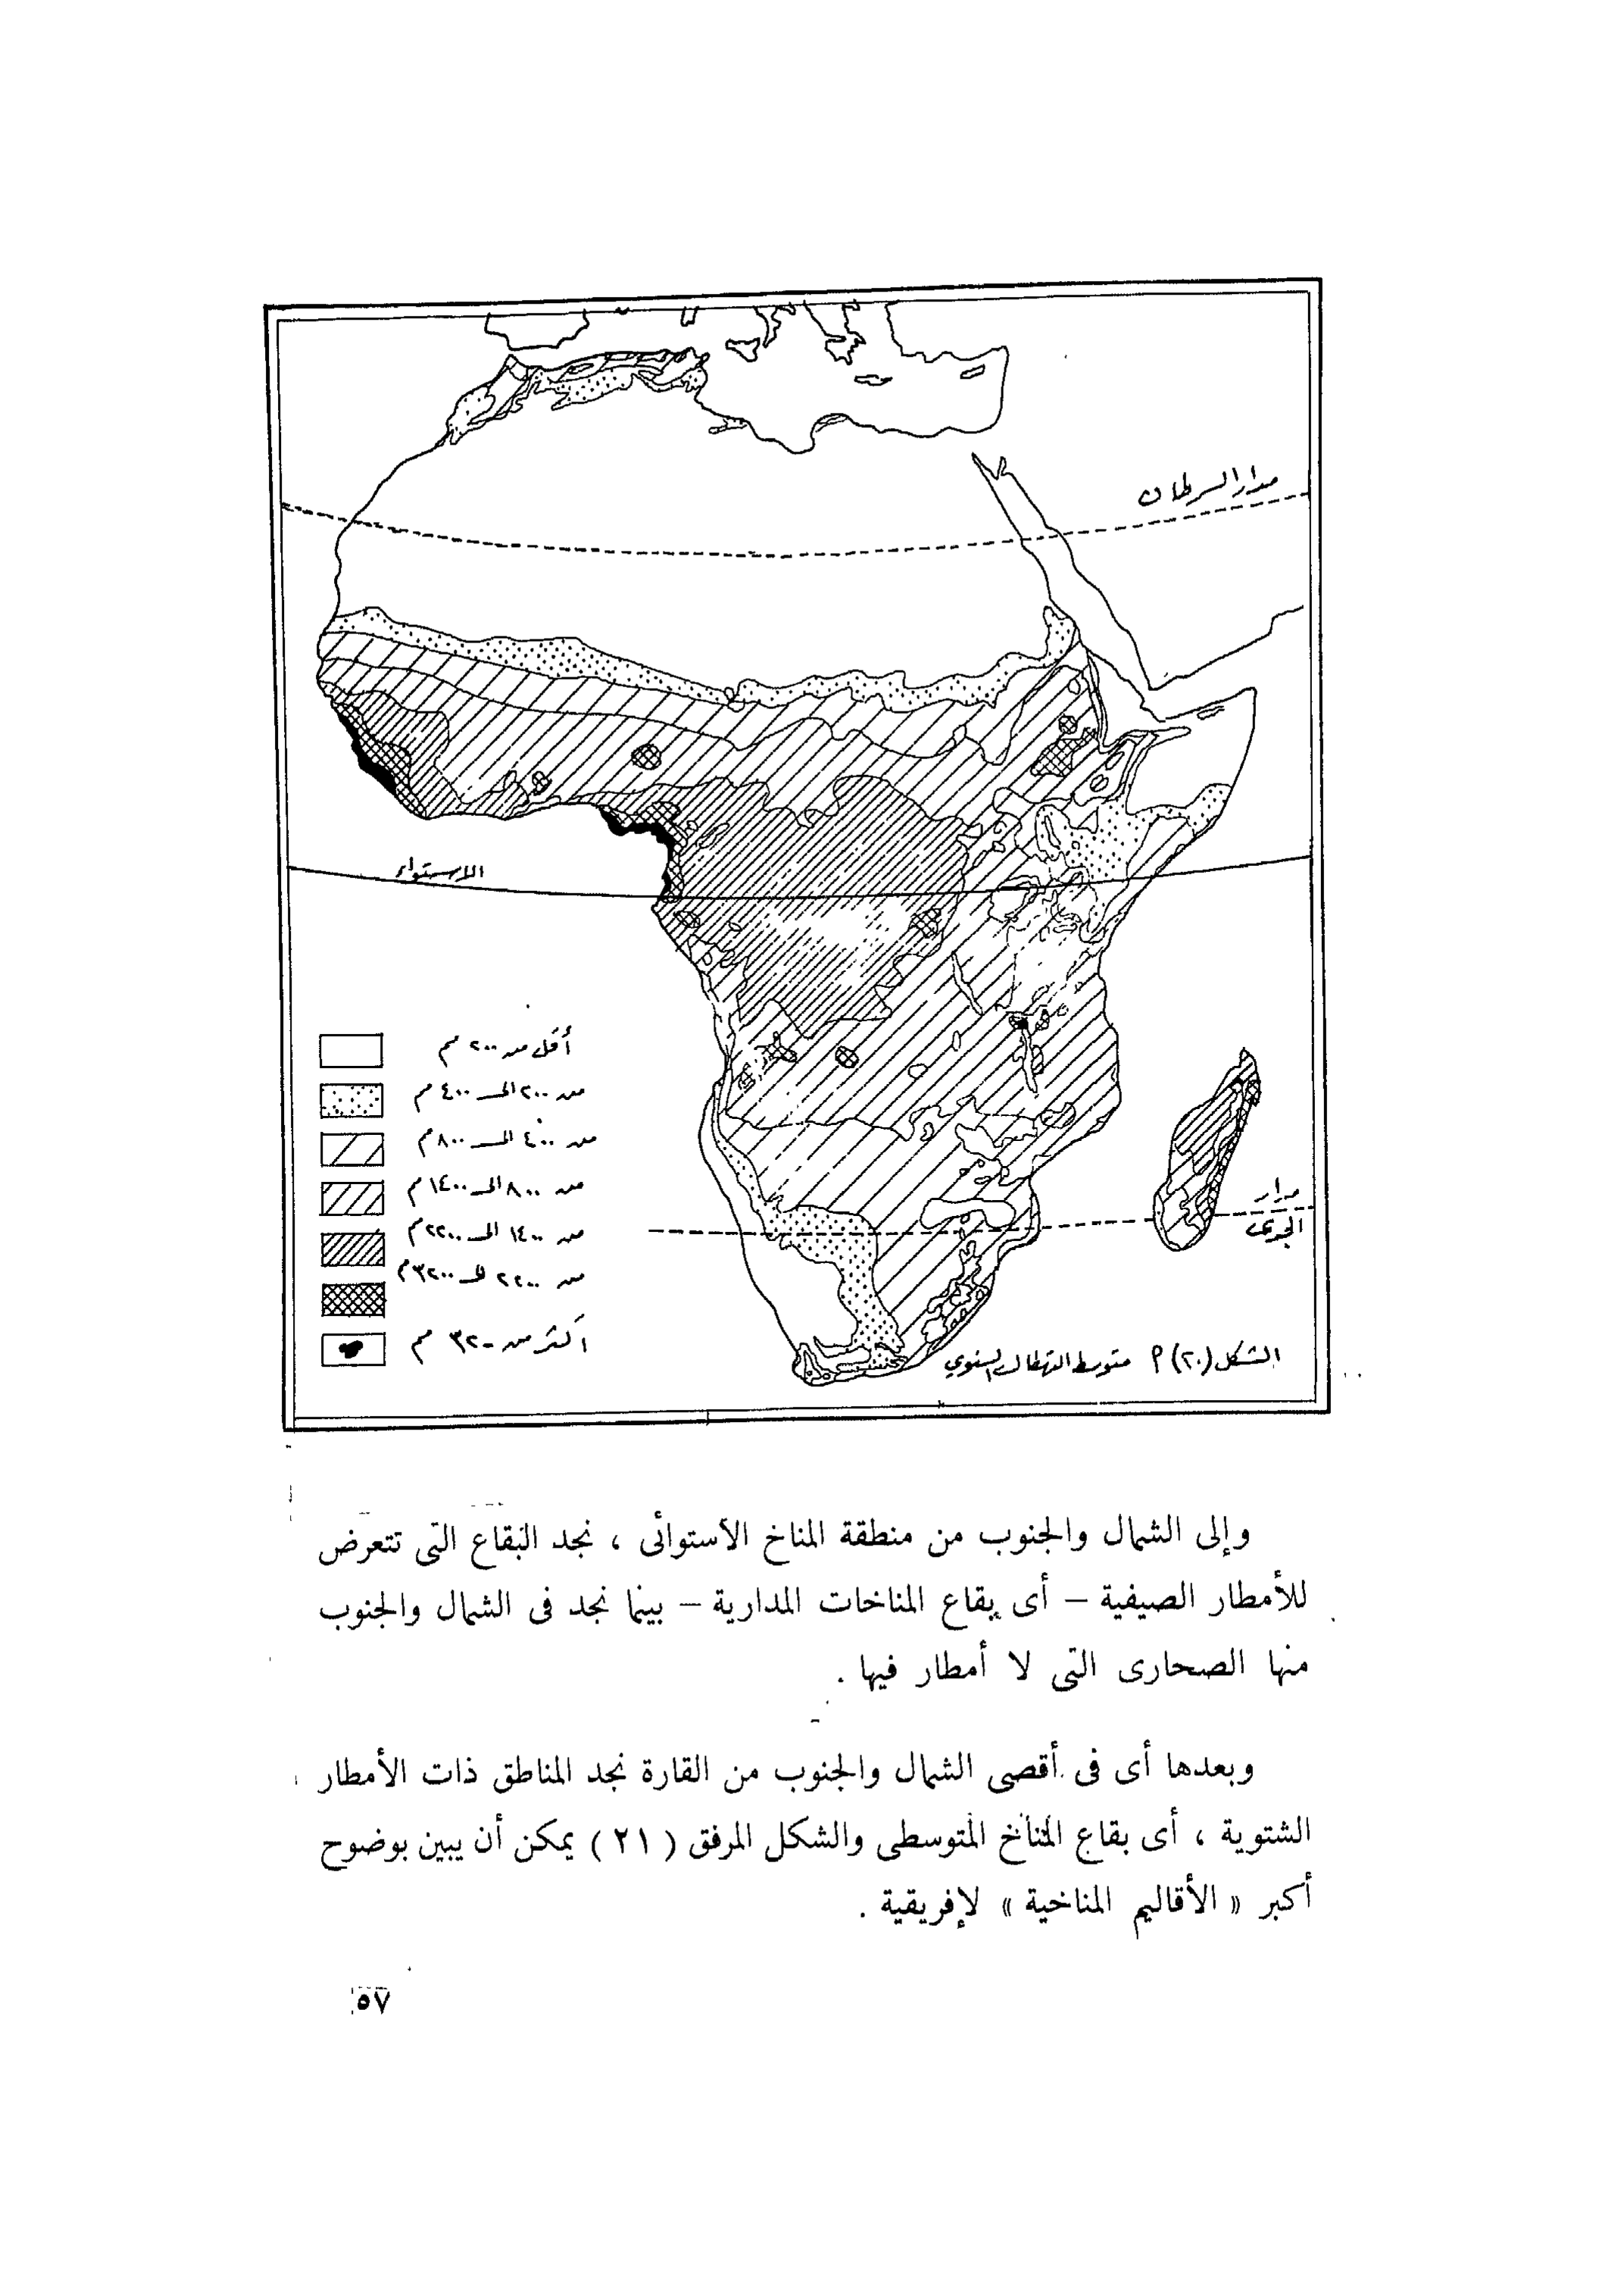 مدار السرطان
الاستواء
أقل من ٢٠٠ مم
من ٢٠٠ الى ٤٠٠ م
من ٤٠٠ الى ٨٠٠ م
من ٨٠٠ الى ١٤٠٠ م
من ١٤٠٠ الى ٢٢٠٠ م
من ٢٢٠٠ الى ٣٢٠٠ م
أكثر من ٣٢٠٠ مم
مدار
الجدى
الشكل (٢٠) م متوسط التهطال السنوي
وإلى الشمال والجنوب من منطقة المناخ الاستوائى ، نجد البقاع التى تتعرض
للأمطار الصيفية – أى بقاع المناخات المدارية – بينما نجد فى الشمال والجنوب
منها الصحارى التى لا أمطار فيها .
وبعدها أى فى أقصى الشمال والجنوب من القارة نجد المناطق ذات الأمطار
الشتوية ، أى بقاع المناخ المتوسطى والشكل المرفق ( ٢١ ) يمكن أن يبين بوضوح
أكبر « الأقاليم المناخية » لإفريقية .
٥٧